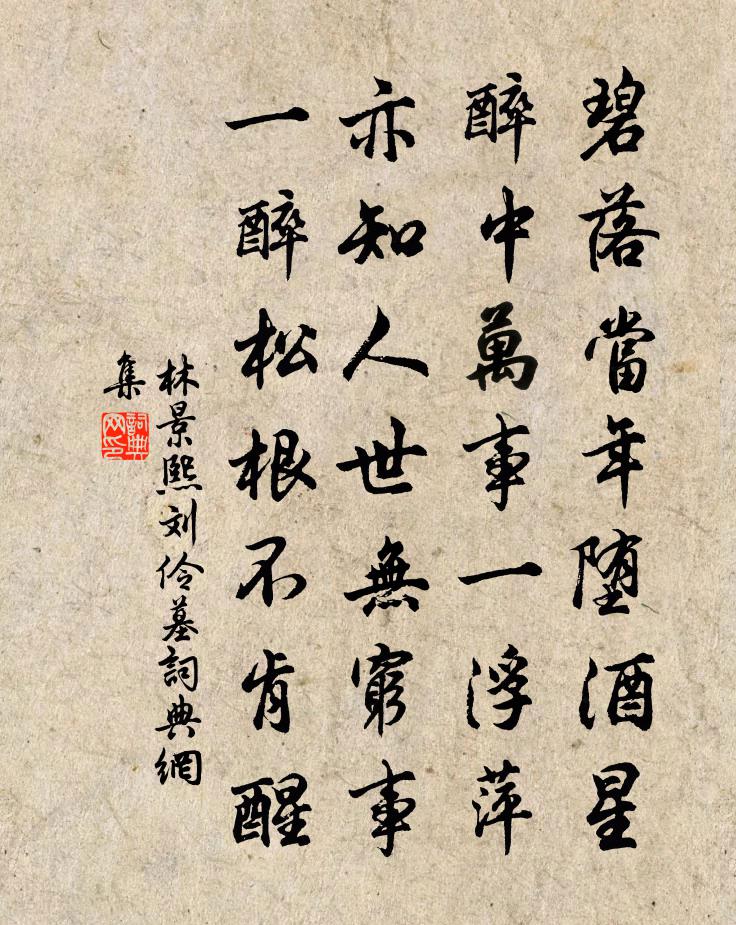 碧落當年堕酒星
醉中萬事一浮萍
亦知人世無窮事
一醉松根不肯醒
林景熙刘伶墓詞典網
集
詞典网印